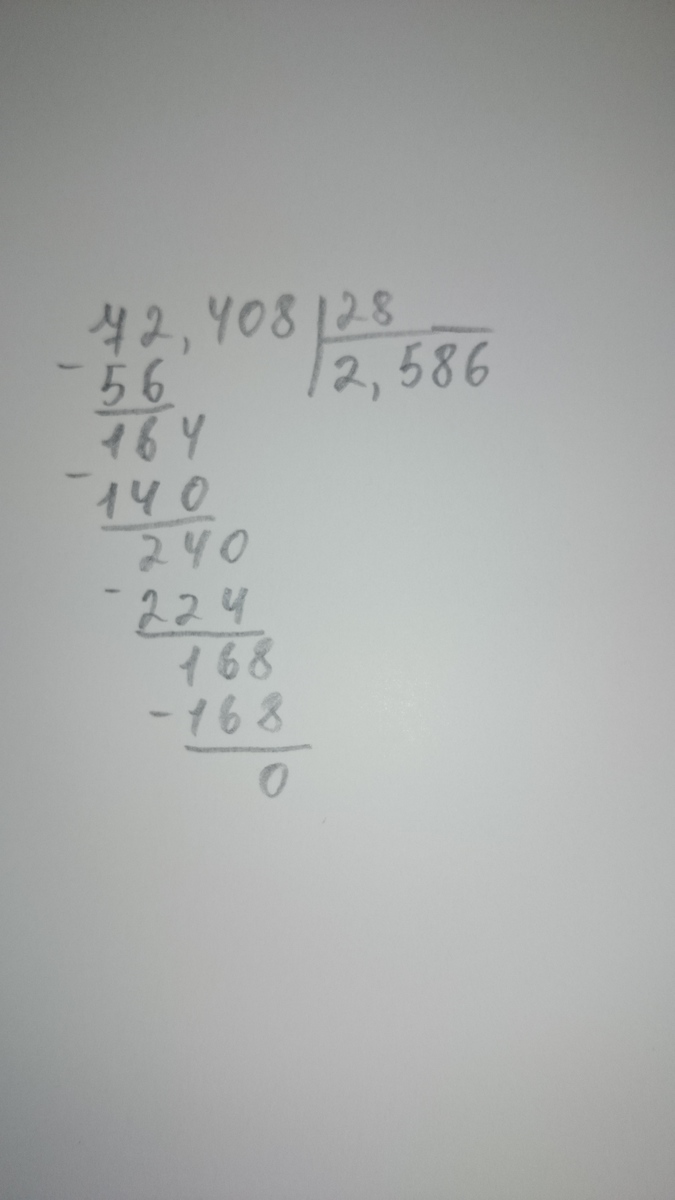 72,408 28
- 2,586
56
164
-
140
240
-
224
168
-168
0